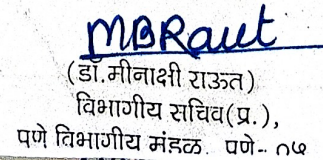 MBRaut
(डॉ.मीनाक्षी राऊत)
विभागीय सचिव(प्र.),
पणे विभागीय मंडळ. पणे- ०५